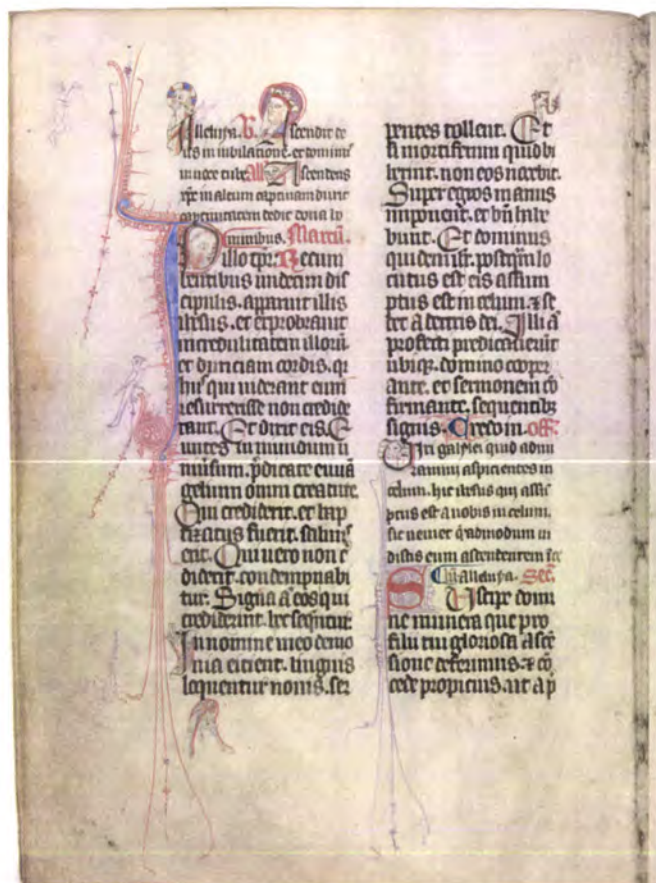 Alleluya. V. Ascendit de
us in iubilatione. et dominus
in voce tube. All. Ascendens
xpc in altum captivam duxit
captivitatem dedit dona ho
minibus. Marcu.
In illo tpr. Recum
bentibus undecim dis
cipulis. apparuit illis
ihesus. et exprobravit
incredulitatem illorum
et duriciam cordis. qi
hiis qui viderant eum
resurrexisse non credide
rant. Et dixit eis. E
untes in mundum u
nivsum. pdicate euua
gelium omni creature.
Qui crediderit. et bap
tizatus fuerit. salvus
erit. Qui vero non c
diderit. condempnabi
tur. Signa a eos qui
crediderint. hec sequntur.
In nomine meo demo
nia eicient. linguis
loquentur novis. ser
pentes tollent. Et
si mortiferum quid bi
berint. non eos nocebit.
Super egros manus
imponent. et bn habe
bunt. Et dominus
quidem ihs. postqm lo
cutus est eis assum
ptus est in celum. z se
det a dextris dei. Illi a
profecti predicaverunt
ubiqz. domino cooper
ante. et sermonem co
firmante. sequentibz
signis. Credo in. off.
Viri galylei quid admi
ramini aspicientes in
celum. hic ihesus qui assu
ptus est a vobis in celum.
sic veniet qadmodum vi
distis eum ascendentem
alleluya. Sec.
Suscipe domi
ne munera que pro
filii tui gloriosa asce
sione deferimus. z co
cede propicius. ut a p